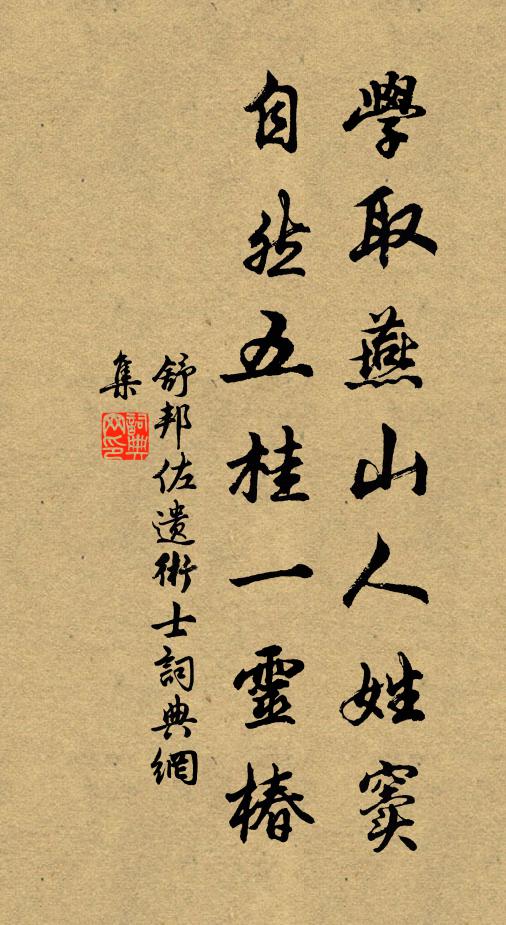 學取燕山人姓竇
自然五桂一靈椿
舒邦佐遺術士詞典網
集
詞典
网印